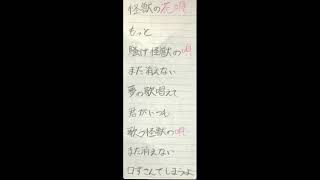 怪獣の花唄
もっと
騒げ怪獣の唄
まだ消えない
夢の歌唱えて
君がいつも
歌う怪獣の唄
まだ消えない
口ずさんでしまうよ